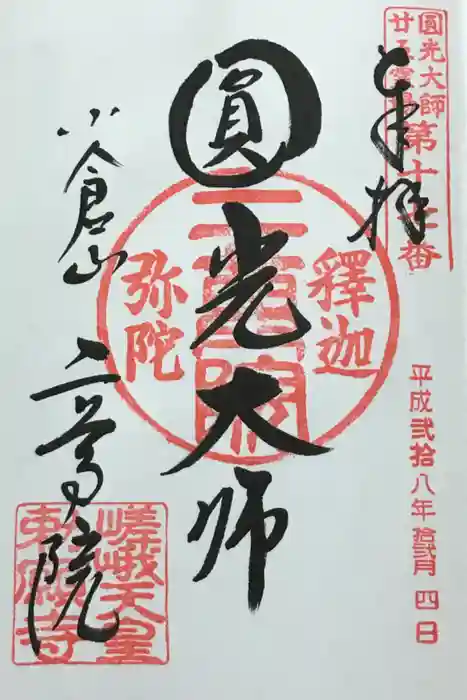 圓光大師
廿五霊場第十七番
奉拝
平成弐拾八年拾弐月四日
圓光大師
釋迦
二尊院
弥陀
小倉山
二尊院
嵯峨天皇
勅願寺